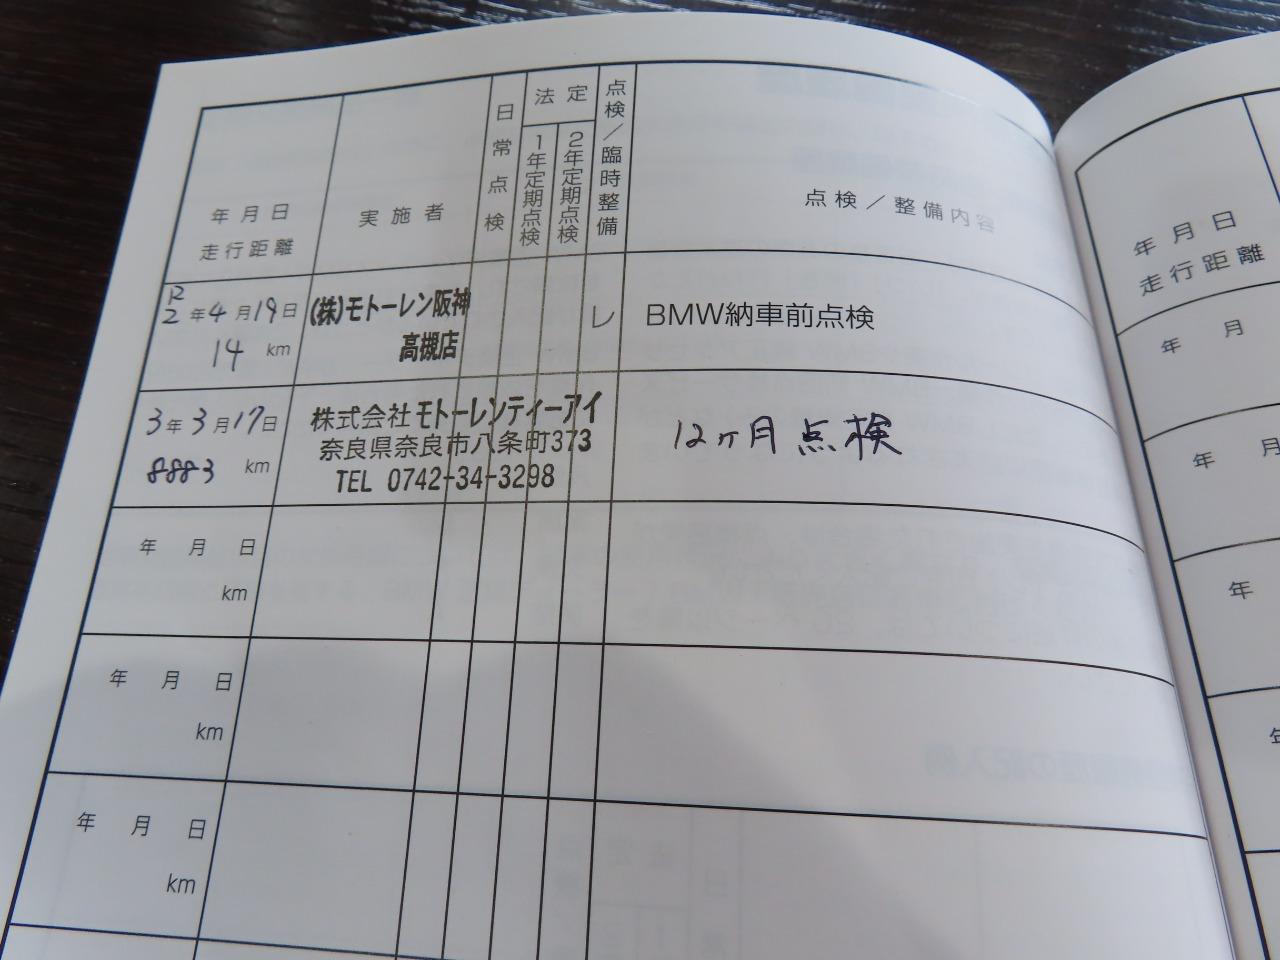 年月日
走行距離
実施者
日常点検
法定
1年定期点検
2年定期点検
点検／臨時整備
点検／整備内容
R
2年4月19日
14 km
(株)モトーレン阪神
高槻店
レ
BMW納車前点検
3年3月17日
8883 km
株式会社モトーレンティーアイ
奈良県奈良市八条町373
TEL 0742-34-3298
12ヶ月点検
年 月 日
km
年 月 日
km
年 月 日
km
年月日
走行距離
年 月
年 月
年
年